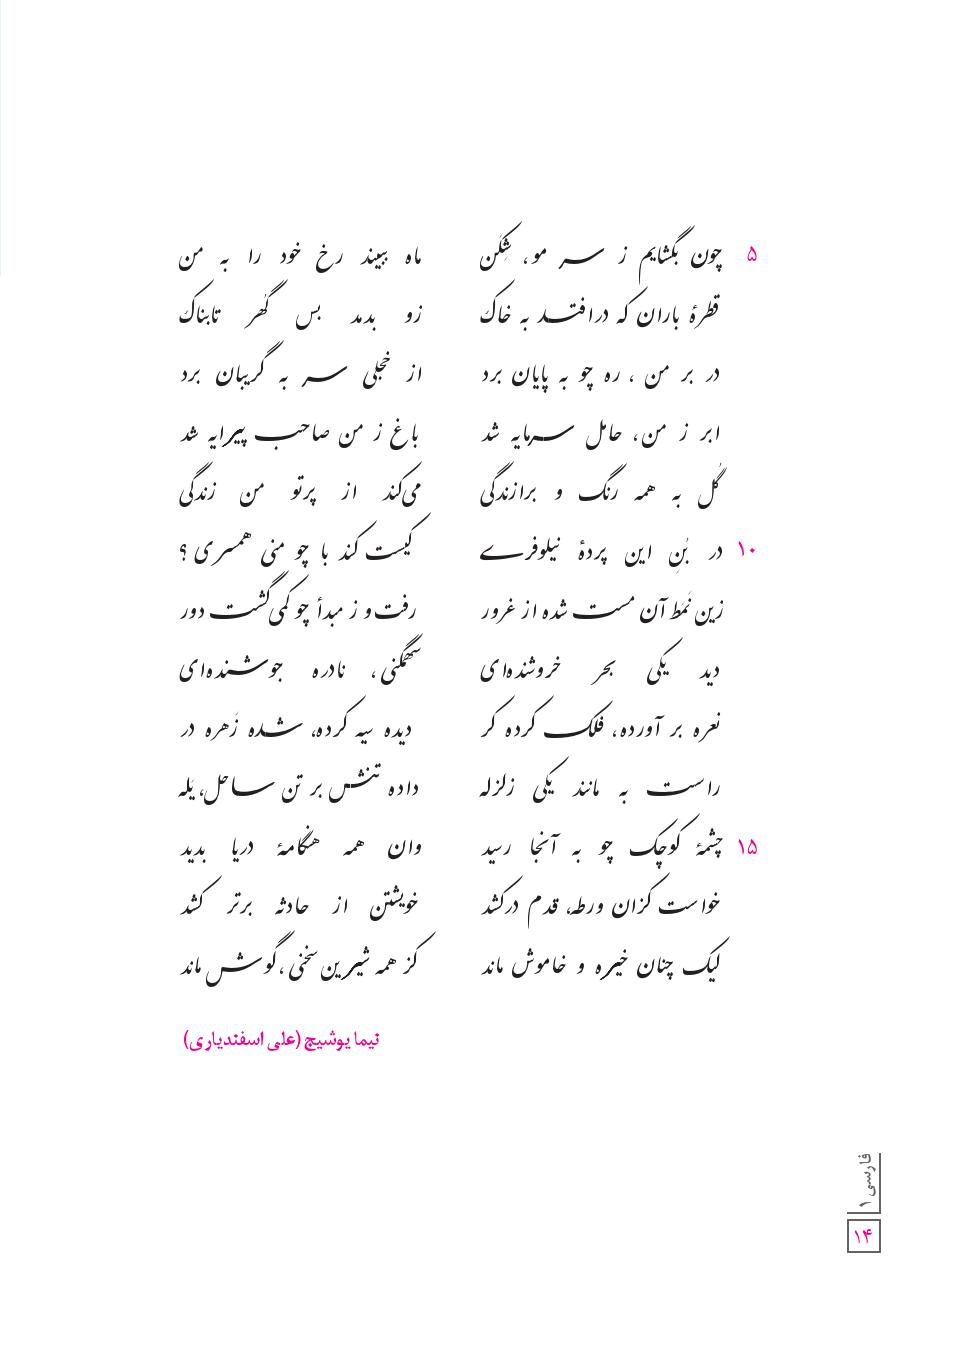 ۵ چون بگشایم ز سر مو، شِکَن ماه ببیند رخ خود را به من
قطرهٔ باران که درافتد به خاک زو بدمد بس گُهر تابناک
در بر من ، ره چو به پایان برد از خجلی سر به گریبان برد
ابر ز من، حامل سرمایه شد باغ ز من صاحب پیرایه شد
گُل به همه رنگ و برازندگی می‌کند از پرتو من زندگی
۱۰ در بُنِ این پردهٔ نیلوفری کیست کند با چو منی همسری ؟
زین نَمَط آن مست شده از غرور رفت و ز مبدأ چو کمی گشت دور
دید یکی بحر خروشنده‌ای سهمگنی، نادره جوشنده‌ای
نعره بر آورده، فلک کرده کر دیده سیه کرده، شده زَهره در
راست به مانند یکی زلزله داده تنش بر تن ساحل، یَله
۱۵ چشمهٔ کوچک چو به آنجا رسید وان همه هنگامهٔ دریا بدید
خواست کزان ورطه، قدم درکشد خویشتن از حادثه برتر کشد
لیک چنان خیره و خاموش ماند کز همه شیرین سخنی، گوش ماند
نیما یوشیج (علی اسفندیاری)
فارسی ۱
۱۴